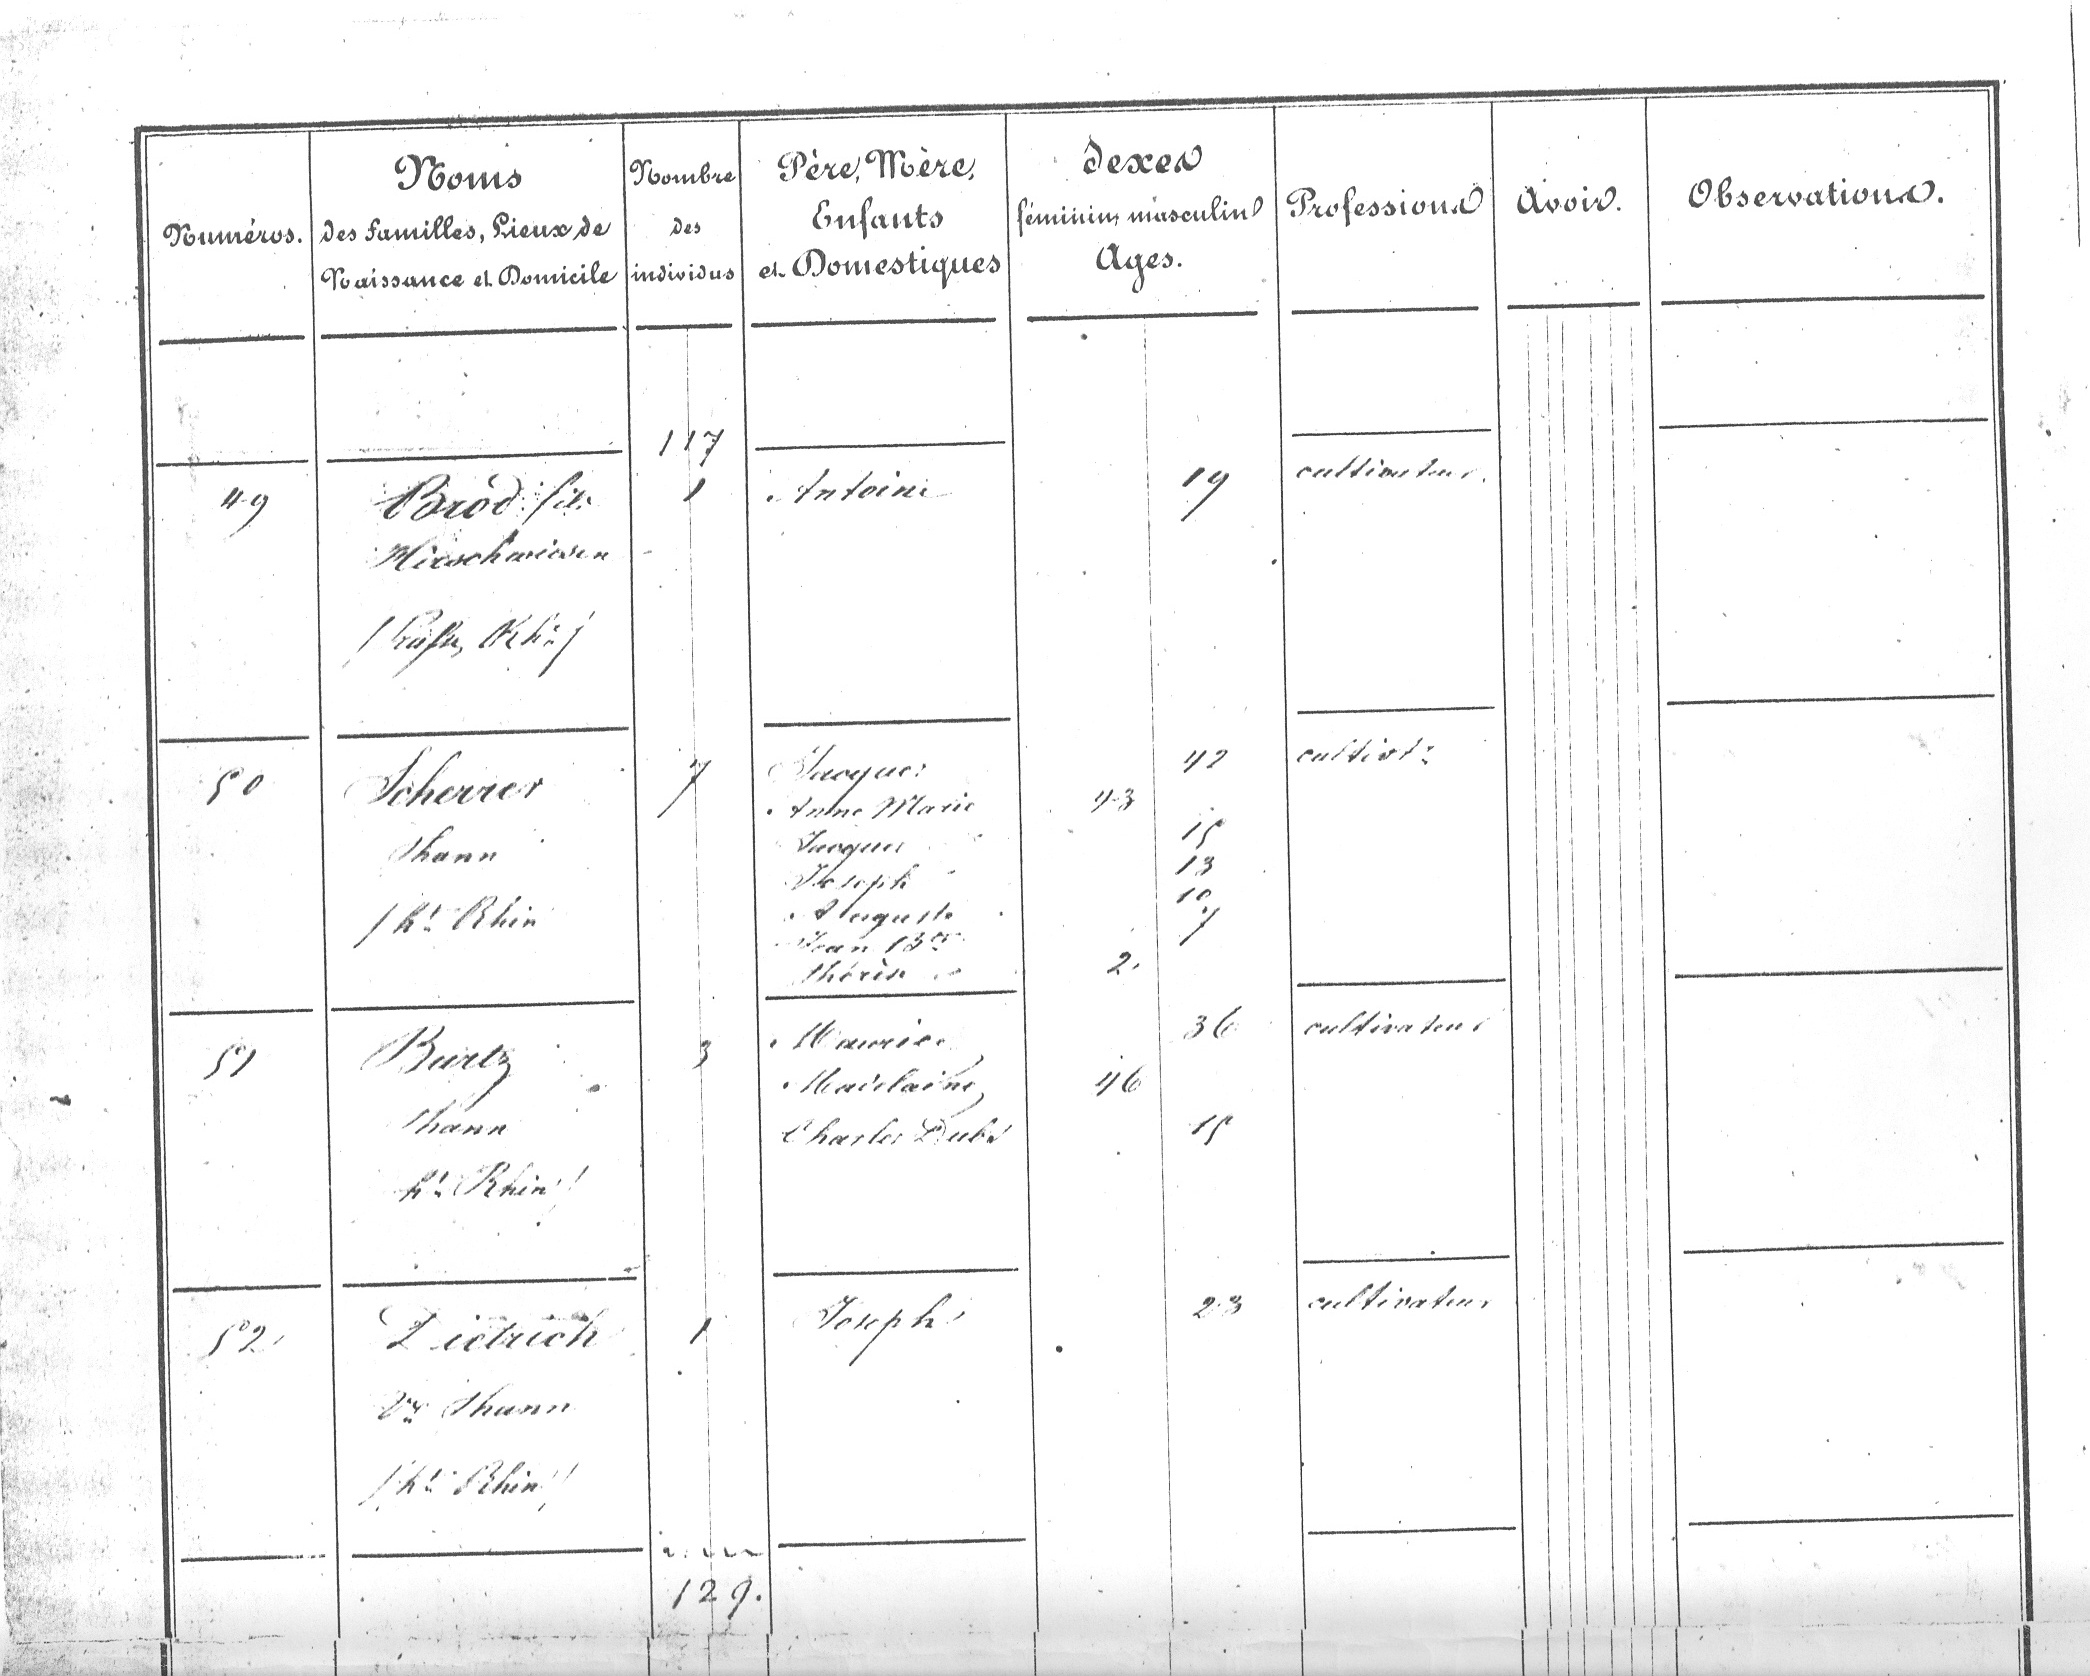 Numéros.
Noms
des Familles, Lieux de
Naissance et Domicile
Nombre
des
individus
Père, Mère,
Enfants
et Domestiques
Sexes
féminin, masculin
Ages.
Professions
Avoir.
Observations.
117
49 Brod fils 1 Antoine 19 cultivateur.
50 Scherrer 7 Jacques 42 cultivatr
Anne Marie 43
Thann Jacques 15
Joseph 13
/ ht Rhin Auguste 10
Jean Bte 7
Thérèse 2.
51 Burtz 3 Maurice 36 cultivateur
Madelaine 46
Thann Charles Dubs 15
ht Rhin /
52 Dietrich 1 Joseph 23 cultivateur
Vx Thann
/ ht Rhin /
129.